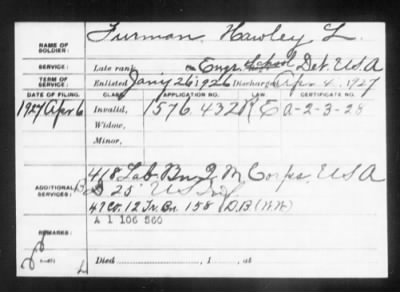 NAME OF SOLDIER: Furman, Hawley L.
SERVICE: Late rank, Engr. School Det. U.S.A
TERM OF SERVICE: Enlisted Jan'y 26 1926 Discharged Apr. 4, 1927
DATE OF FILING. CLASS. APPLICATION NO. LAW. CERTIFICATE NO.
1927 Apr 6 Invalid, 1576.432 A-2-3-28
Widow,
Minor,
418 Lab. Bn Q M Corps. U.S.A
ADDITIONAL SERVICES: D 25 U.S. Inf
47 Co. 12 Tr. Bn. 158 D.B. (W.W.)
A 1 106 560
REMARKS:
Died , 1 , at